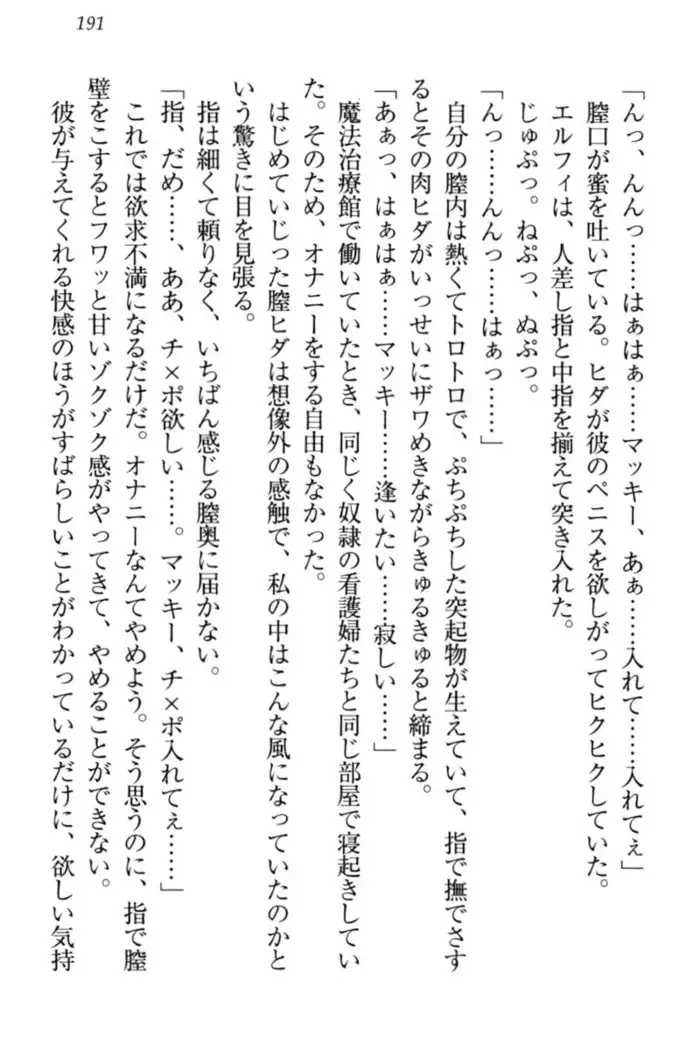 191
「んっ、んんっ……はぁはぁ……マッキー、あぁ……入れて……入れてぇ」
膣口が蜜を吐いている。ヒダが彼のペニスを欲しがってヒクヒクしていた。
エルフィは、人差し指と中指を揃えて突き入れた。
じゅぷっ。ねぷっ、ぬぷっ。
「んっ……んんっ……はぁっ……」
自分の膣内は熱くてトロトロで、ぷちぷちした突起物が生えていて、指で撫でさす
るとその肉ヒダがいっせいにザワめきながらきゅるきゅると締まる。
「あぁっ、はぁはぁ……マッキー……逢いたい……寂しい……」
魔法治療館で働いていたとき、同じく奴隷の看護婦たちと同じ部屋で寝起きしてい
た。そのため、オナニーをする自由もなかった。
はじめていじった膣ヒダは想像外の感触で、私の中はこんな風になっていたのかと
いう驚きに目を見張る。
指は細くて頼りなく、いちばん感じる膣奥に届かない。
「指、だめ……、ああ、チ×ポ欲しい……。マッキー、チ×ポ入れてぇ……」
これでは欲求不満になるだけだ。オナニーなんてやめよう。そう思うのに、指で膣
壁をこするとフワッと甘いゾクゾク感がやってきて、やめることができない。
彼が与えてくれる快感のほうがすばらしいことがわかっているだけに、欲しい気持